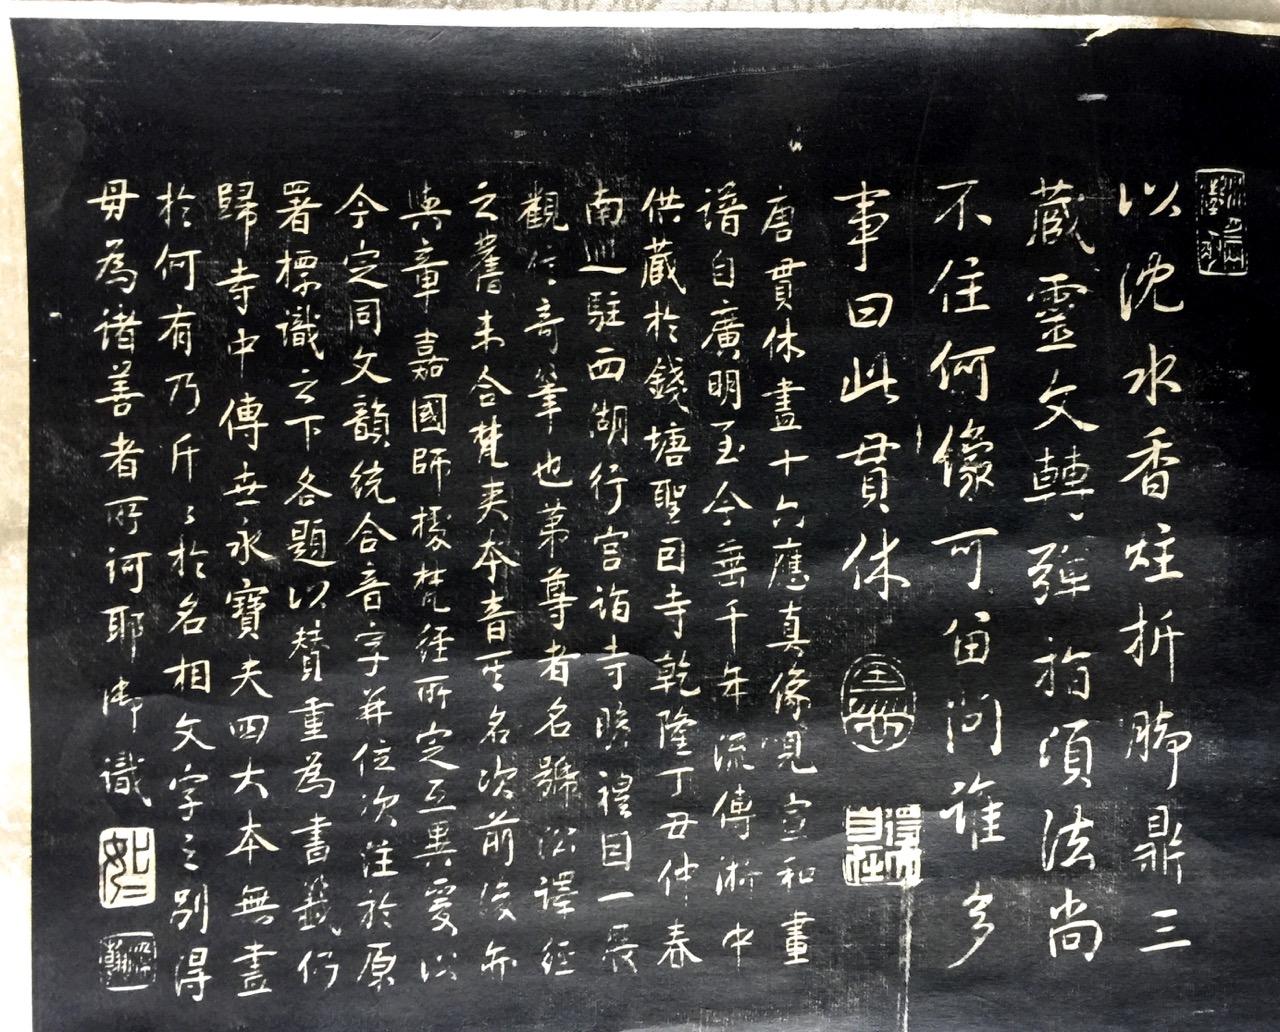 以沈水香炷折腳鼎三
藏靈文轉彈指須法尚
不住何像可留問誰多
事曰此貫休
唐貫休畫十六應真像見宣和畫
譜自廣明至今垂千年流傳浙中
供藏於錢塘聖因寺乾隆丁丑仲春
南巡駐西湖行宮詣寺瞻禮因一展
觀信奇筆也第尊者名號沿譯經
之舊未合梵夾本音其名次前後亦
與章嘉國師據梵經所定互異爰以
今定同文韻統合音字并位次注於原
署標識之下各題以贊重為書籤仍
歸寺中傳世永寶夫四大本無畫
於何有乃斤〻於名相文字之別得
毋為諸善者所訶耶御識